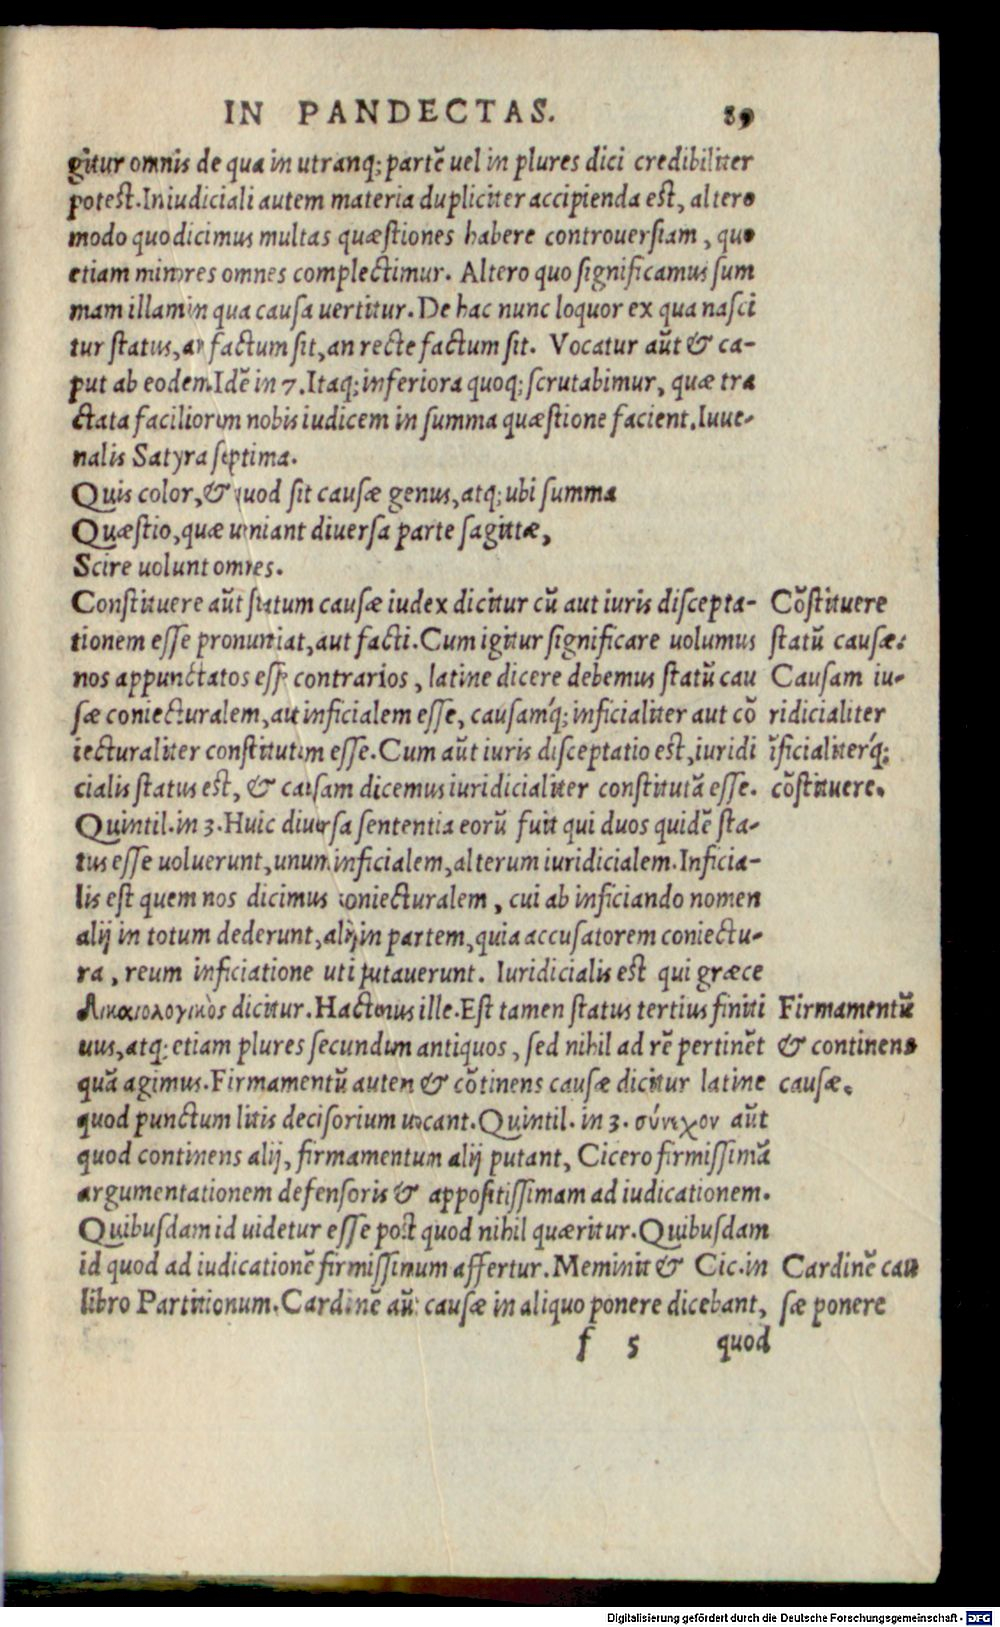 IN PANDECTAS. 89
gitur omnis de qua in utranq; partē uel in plures dici credibiliter
potest. In iudiciali autem materia dupliciter accipienda est, altero
modo quo dicimus multas quæstiones habere controuersiam, quo
etiam minores omnes complectimur. Altero quo significamus sum
mam illam in qua causa uertitur. De hac nunc loquor ex qua nasci
tur status, an factum sit, an recte factum sit. Vocatur aūt & ca-
put ab eodem. Idē in 7. Itaq; inferiora quoq; scrutabimur, quæ tra
ctata faciliorem nobis iudicem in summa quæstione facient. Iuue-
nalis Satyra septima.
Quis color, & quod sit causæ genus, atq; ubi summa
Quæstio, quæ ueniant diuersa parte sagittæ,
Scire uolunt omnes.
Constituere aūt statum causæ iudex dicitur cū aut iuris discepta- Cōstituere
tionem esse pronuntiat, aut facti. Cum igitur significare uolumus statū causæ.
nos appunctatos esse contrarios, latine dicere debemus statū cau Causam iu-
sæ coniecturalem, aut inficialem esse, causamq́; inficialiter aut cō ridicialiter
iecturaliter constitutam esse. Cum aūt iuris disceptatio est, iuridi īficialiterq́;
cialis status est, & causam dicemus iuridicialiter constitutā esse. cōstituere.
Quintil. in 3. Huic diuersa sententia eorū fuit qui duos quidē sta-
tus esse uoluerunt, unum inficialem, alterum iuridicialem. Inficia-
lis est quem nos dicimus coniecturalem, cui ab inficiando nomen
alij in totum dederunt, alij in partem, quia accusatorem coniectu-
ra, reum inficiatione uti putauerunt. Iuridicialis est qui græce
Δικαιολογικὸς dicitur. Hactenus ille. Est tamen status tertius finiti Firmamentū
uus, atq; etiam plures secundum antiquos, sed nihil ad rē pertinēt & continens
quā agimus. Firmamentū autem & cōtinens causæ dicitur latine causæ.
quod punctum litis decisorium uocant. Quintil. in 3. σύνεχον aūt
quod continens alij, firmamentum alij putant, Cicero firmissimā
argumentationem defensoris & appositissimam ad iudicationem.
Quibusdam id uidetur esse post quod nihil quæritur. Quibusdam
id quod ad iudicationē firmissimum affertur. Meminit & Cic. in Cardinē cau
libro Partitionum. Cardinē aūt causæ in aliquo ponere dicebant, sæ ponere
f 5 quod
Digitalisierung gefördert durch die Deutsche Forschungsgemeinschaft - DFG